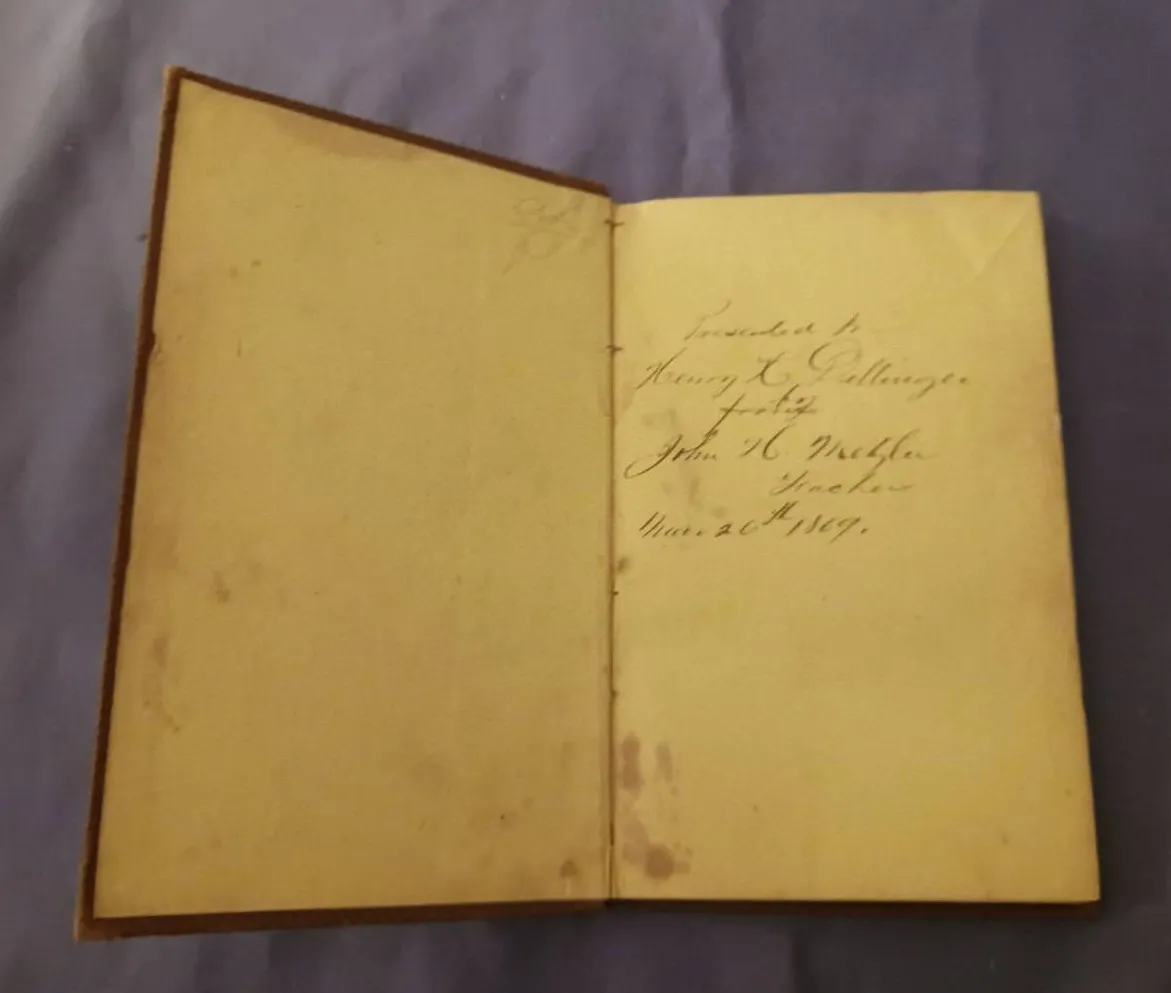 Presented to
Henry K.
from
John H. Metzler
Teacher
Mar. 26th 1869.